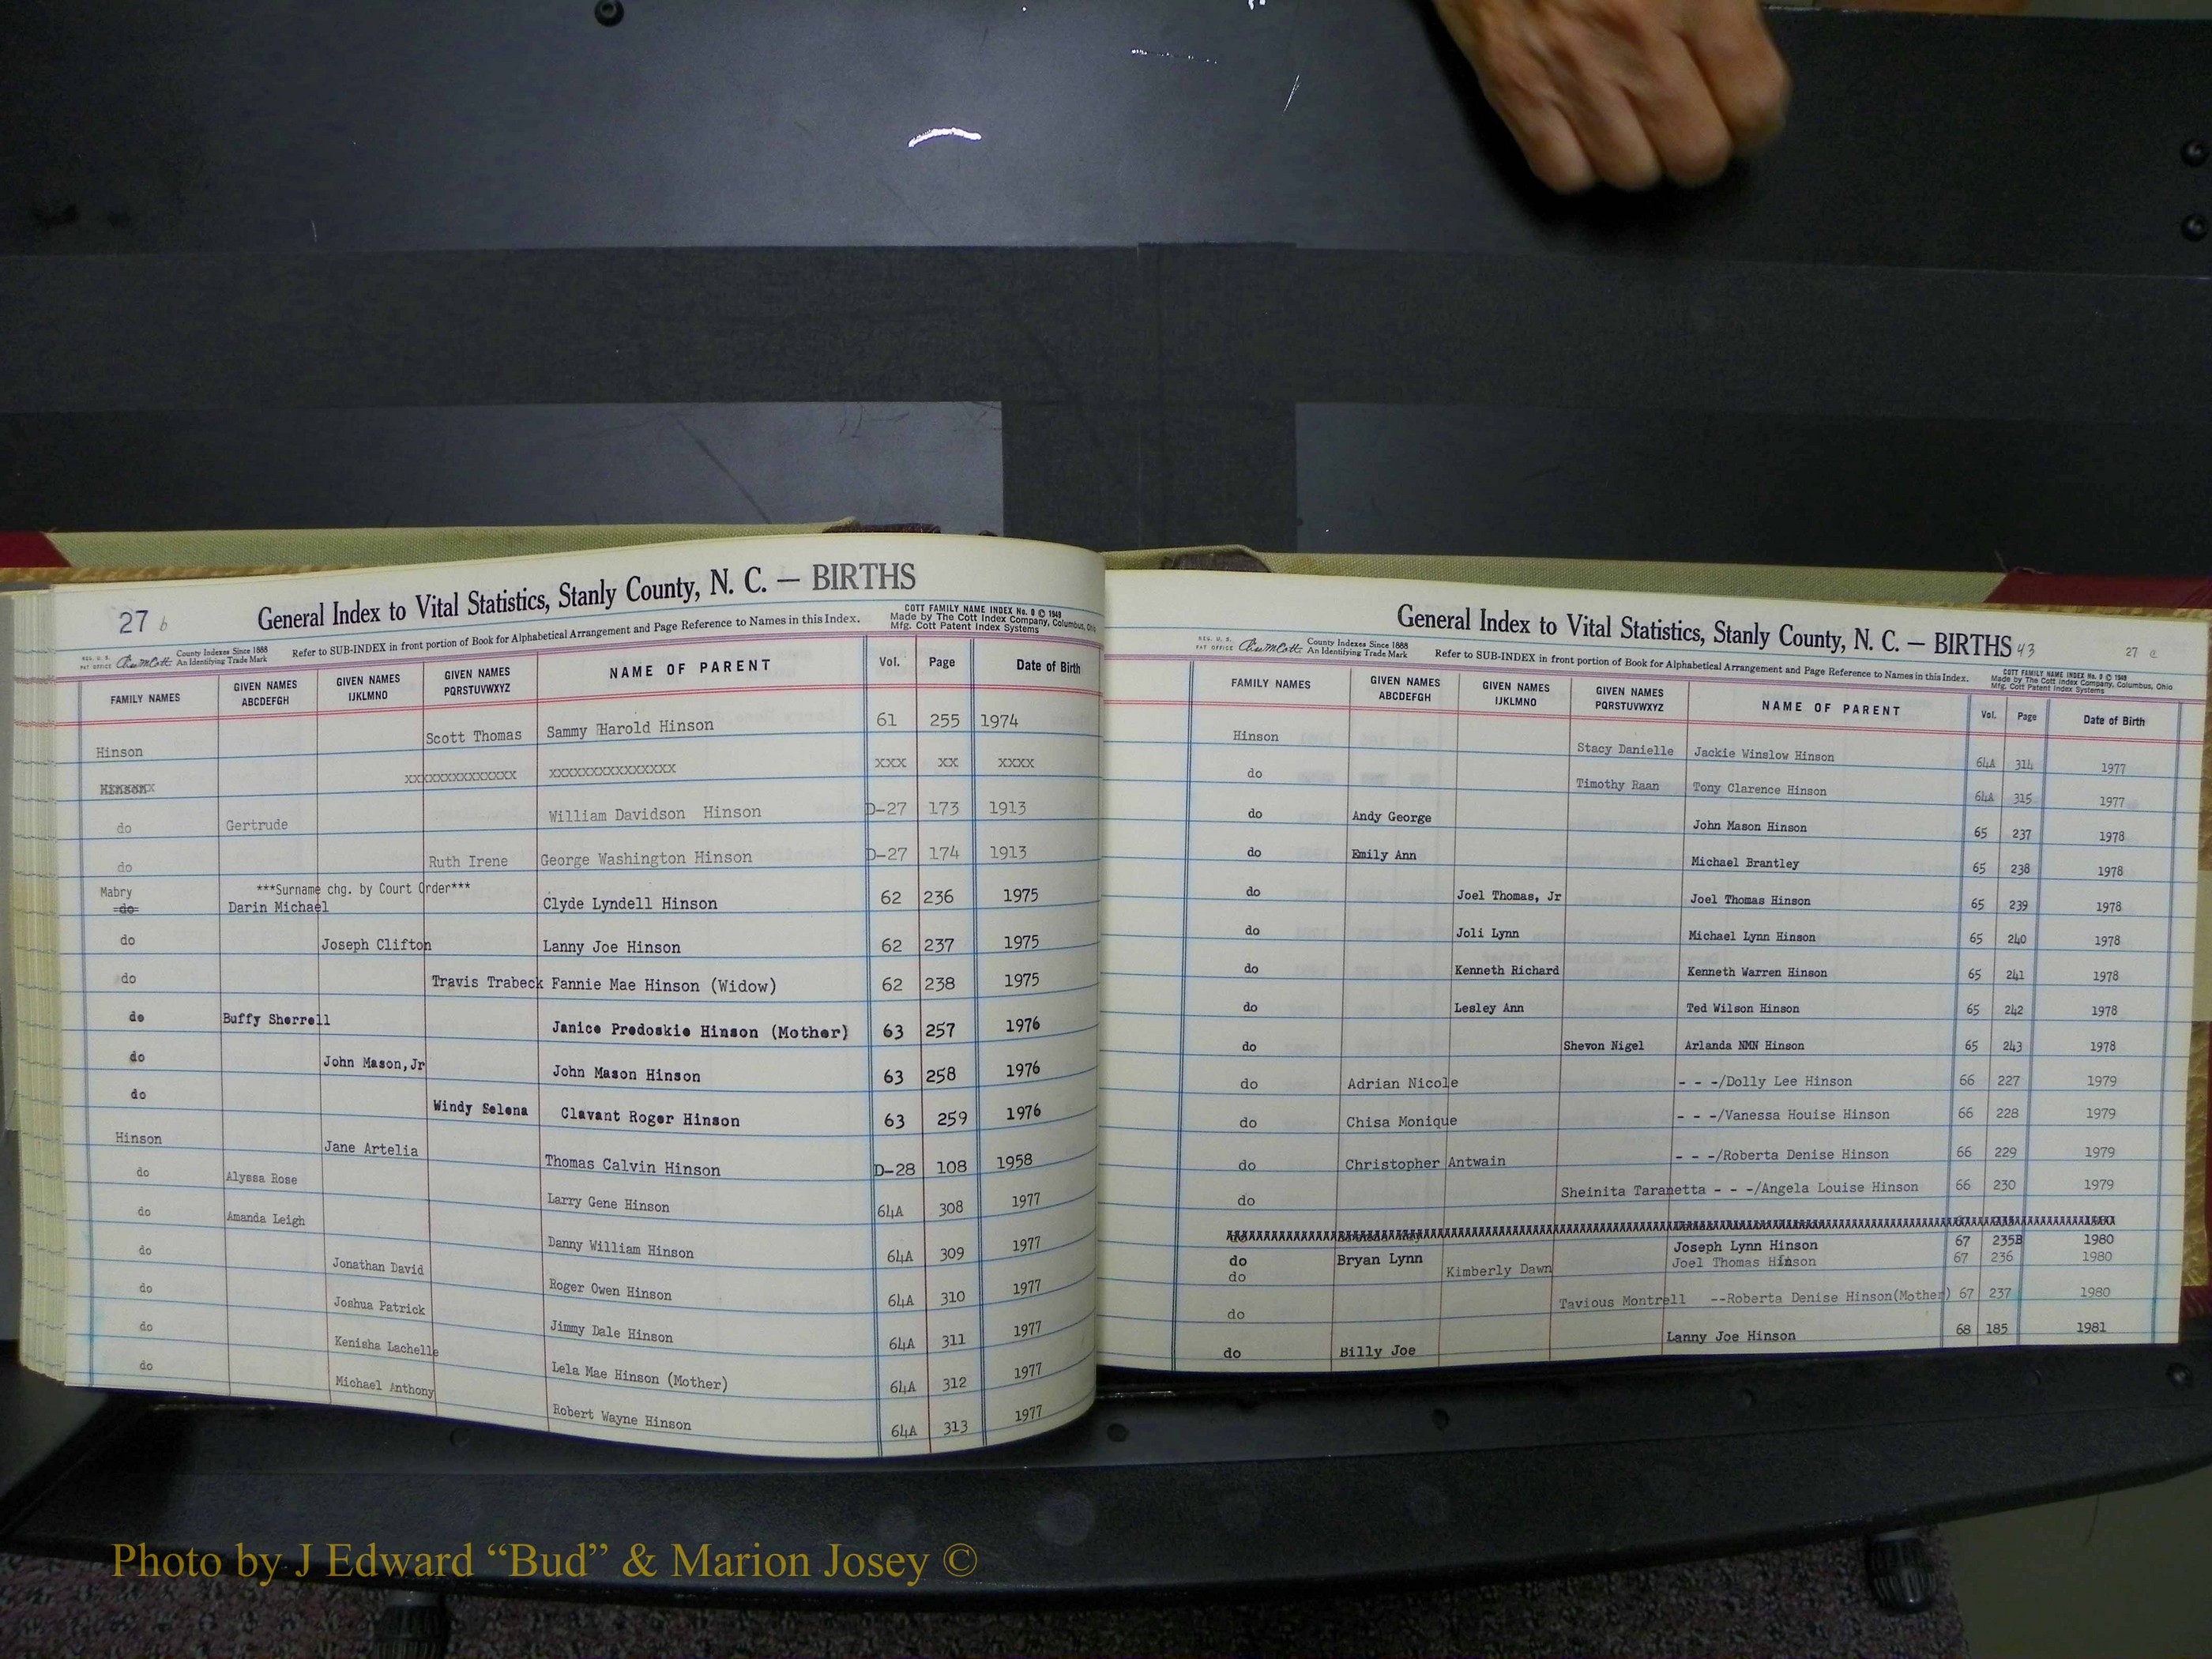 27 b
General Index to Vital Statistics, Stanly County, N. C. — BIRTHS
REG. U. S. PAT OFFICE County Indexes Since 1888 An Identifying Trade Mark
Refer to SUB-INDEX in front portion of Book for Alphabetical Arrangement and Page Reference to Names in this Index.
COTT FAMILY NAME INDEX No. 0 © 1949
Made by The Cott Index Company, Columbus, Ohio
Mfg. Cott Patent Index Systems
FAMILY NAMES GIVEN NAMES ABCDEFGH GIVEN NAMES IJKLMNO GIVEN NAMES PQRSTUVWXYZ NAME OF PARENT Vol. Page Date of Birth
Hinson Scott Thomas Sammy Harold Hinson 61 255 1974
xxxxxxxxxxxxxx xxxxxxxxxxxxxxxx xxx xx xxxx
do Gertrude William Davidson Hinson D-27 173 1913
do Ruth Irene George Washington Hinson D-27 174 1913
Mabry ***Surname chg. by Court Order***
do Darin Michael Clyde Lyndell Hinson 62 236 1975
do Joseph Clifton Lanny Joe Hinson 62 237 1975
do Travis Trabeck Fannie Mae Hinson (Widow) 62 238 1975
do Buffy Sherrell Janice Predoskie Hinson (Mother) 63 257 1976
do John Mason,Jr John Mason Hinson 63 258 1976
do Windy Selena Clavant Roger Hinson 63 259 1976
Hinson Jane Artelia Thomas Calvin Hinson D-28 108 1958
do Alyssa Rose Larry Gene Hinson 64A 308 1977
do Amanda Leigh Danny William Hinson 64A 309 1977
do Jonathan David Roger Owen Hinson 64A 310 1977
do Joshua Patrick Jimmy Dale Hinson 64A 311 1977
do Kenisha Lachelle Lela Mae Hinson (Mother) 64A 312 1977
do Michael Anthony Robert Wayne Hinson 64A 313 1977
General Index to Vital Statistics, Stanly County, N. C. — BIRTHS 43
27 c
REG. U. S. PAT OFFICE County Indexes Since 1888 An Identifying Trade Mark
Refer to SUB-INDEX in front portion of Book for Alphabetical Arrangement and Page Reference to Names in this Index.
COTT FAMILY NAME INDEX No. 0 © 1949
Made by The Cott Index Company, Columbus, Ohio
Mfg. Cott Patent Index Systems
FAMILY NAMES GIVEN NAMES ABCDEFGH GIVEN NAMES IJKLMNO GIVEN NAMES PQRSTUVWXYZ NAME OF PARENT Vol. Page Date of Birth
Hinson Stacy Danielle Jackie Winslow Hinson 64A 314 1977
do Timothy Raan Tony Clarence Hinson 64A 315 1977
do Andy George John Mason Hinson 65 237 1978
do Emily Ann Michael Brantley 65 238 1978
do Joel Thomas, Jr Joel Thomas Hinson 65 239 1978
do Joli Lynn Michael Lynn Hinson 65 240 1978
do Kenneth Richard Kenneth Warren Hinson 65 241 1978
do Lesley Ann Ted Wilson Hinson 65 242 1978
do Shevon Nigel Arlanda NMN Hinson 65 243 1978
do Adrian Nicole - - -/Dolly Lee Hinson 66 227 1979
do Chisa Monique - - -/Vanessa Houise Hinson 66 228 1979
do Christopher Antwain - - -/Roberta Denise Hinson 66 229 1979
do Sheinita Taranetta - - -/Angela Louise Hinson 66 230 1979
do Bryan Lynn Joseph Lynn Hinson 67 235B 1980
do Kimberly Dawn Joel Thomas Hinson 67 236 1980
do Tavious Montrell --Roberta Denise Hinson(Mother) 67 237 1980
do Billy Joe Lanny Joe Hinson 68 185 1981
Photo by J Edward “Bud” & Marion Josey ©